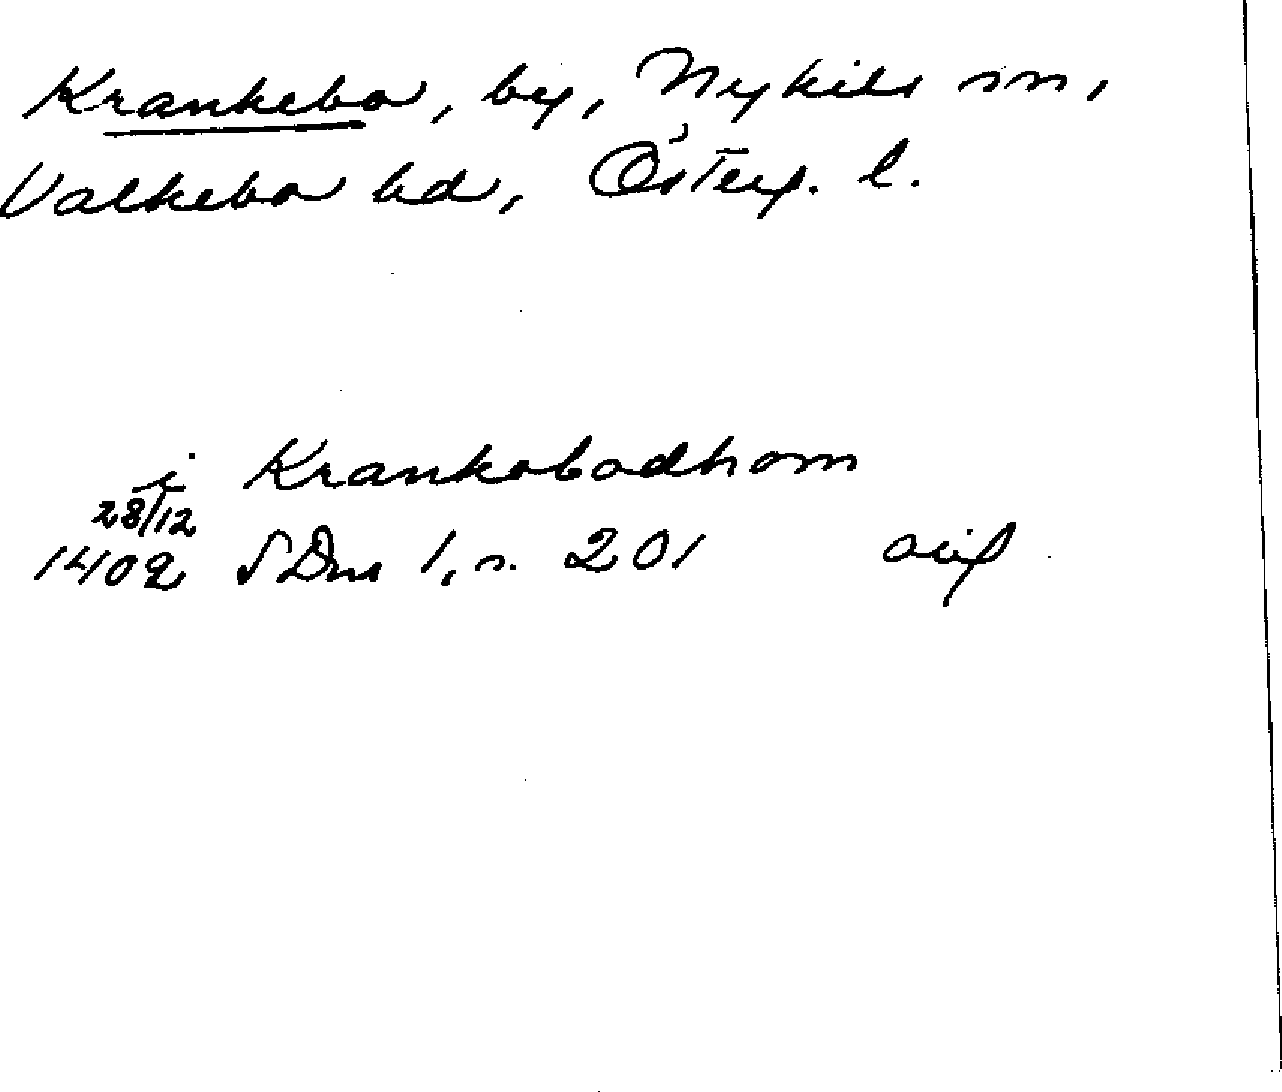 Krankebo, by, Nykils sn,
Valkebo hd, Österg. l.
i Krankabodhom
28/12
1402 SDns 1, s. 201 avs